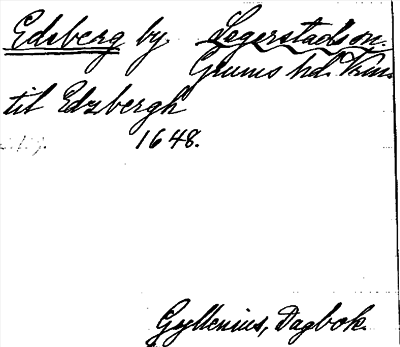 Edsberg by. Segerstads sn.
Grums hd. Vrm.
til Edzbergh
1648.
Gyllenius, Dagbok.